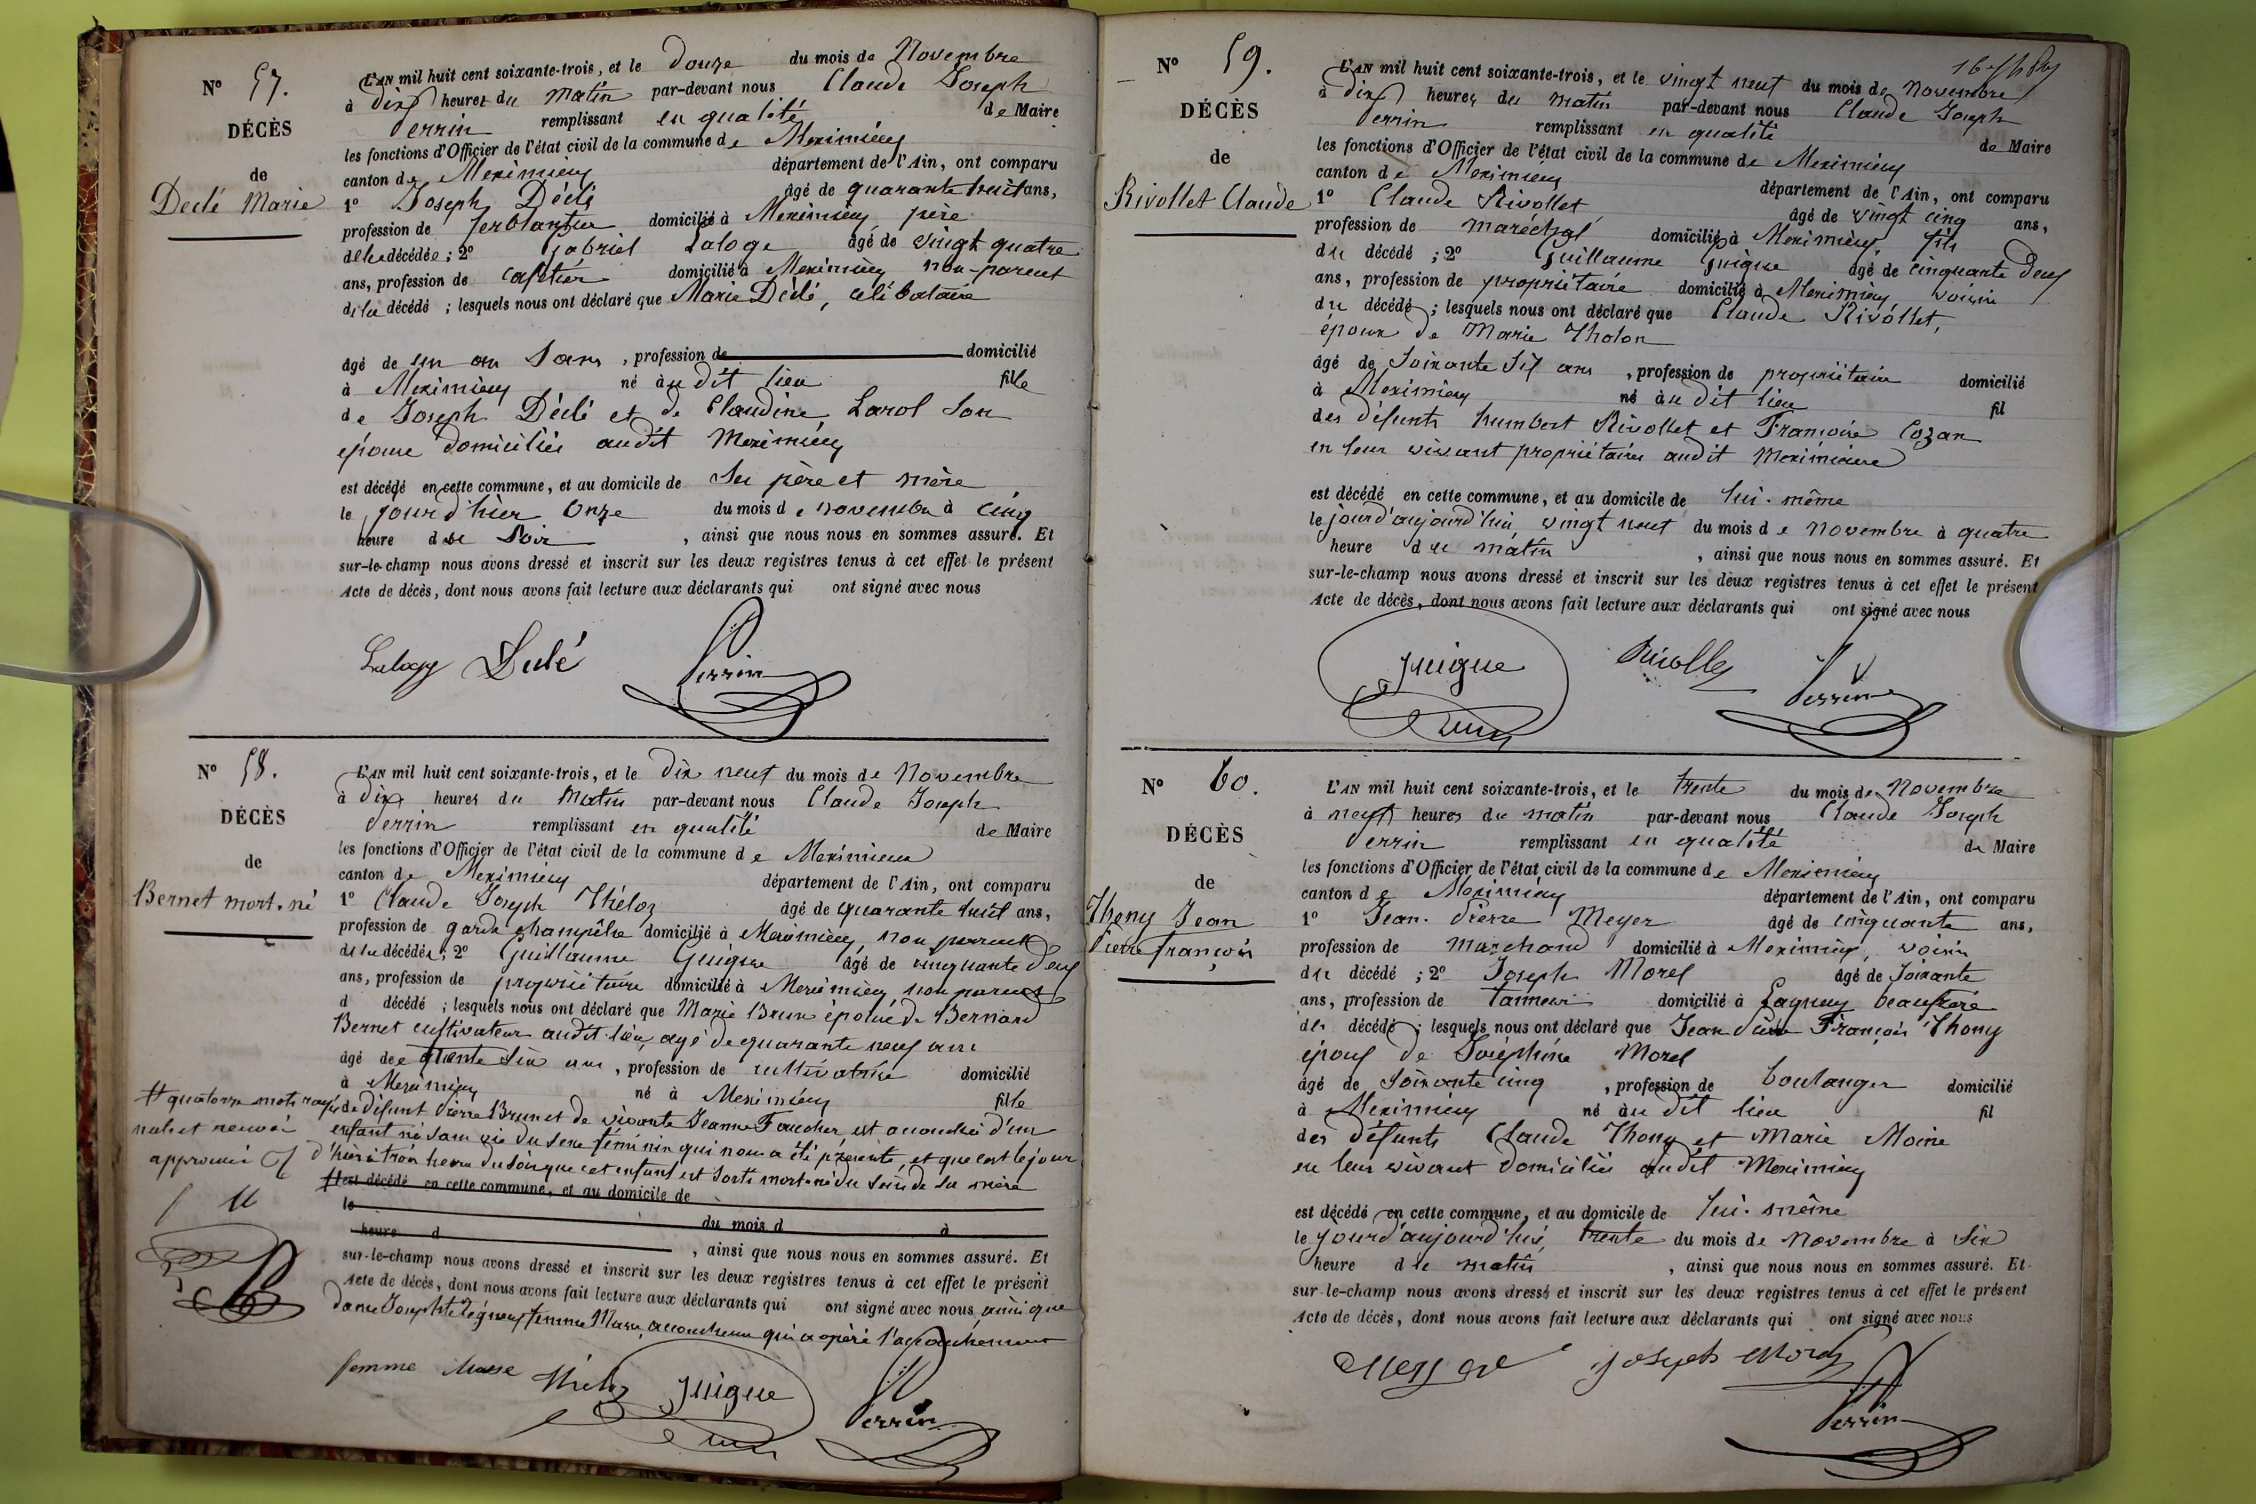 N° 57.
DÉCÈS
de
Declé Marie
L'AN mil huit cent soixante-trois, et le douze du mois de Novembre
à dix heures du matin par-devant nous Claude Joseph
Perrin remplissant en qualité de Maire
les fonctions d'Officier de l'état civil de la commune de Meximieux
canton de Meximieux département de l'Ain, ont comparu
1° Joseph Déclé âgé de quarante huit ans,
profession de ferblantier domicilié à Meximieux père
de la décédée ; 2° Gabriel Laloge âgé de vingt quatre
ans, profession de cafetier domicilié à Meximieux non-parent
de la décédé ; lesquels nous ont déclaré que Marie Déclé, célibataire
âgé de un an , profession de domicilié
à Meximieux né au dit lieu fille
de Joseph Déclé et de Claudine Larol son
épouse domiciliés audit Meximieux
est décédé en cette commune, et au domicile de ses père et mère
le jour d'hier onze du mois de novembre à cinq
heure du soir , ainsi que nous nous en sommes assuré. Et
sur-le-champ nous avons dressé et inscrit sur les deux registres tenus à cet effet le présent
Acte de décès, dont nous avons fait lecture aux déclarants qui ont signé avec nous
Laloge Declé Perrin
N° 58.
DÉCÈS
de
Bernet mort-né
L'AN mil huit cent soixante-trois, et le dix neuf du mois de Novembre
à dix heures du matin par-devant nous Claude Joseph
Perrin remplissant en qualité de Maire
les fonctions d'Officier de l'état civil de la commune de Meximieux
canton de Meximieux département de l'Ain, ont comparu
1° Claude Joseph Théloz âgé de quarante huit ans,
profession de garde champêtre domicilié à Meximieux, non parent
de la décédée ; 2° Guillaume Guigue âgé de cinquante deux
ans, profession de propriétaire domicilié à Meximieux non parent
d décédé ; lesquels nous ont déclaré que Marie Brun épouse de Bernard
Bernet cultivateur audit lieu, agé de quarante neuf ans
âgé de trente six ans , profession de cultivatrice domicilié
à Meximieux né à Meximieux fille
de défunt Pierre Brunet de vivante Jeanne Faucher est accouchée d'un
enfant né sans vie du sexe féminin qui nous a été présenté, et que c'est le jour
d'hier à trois heures du soir que cet enfant est sorti mort-né du sein de sa mère
est décédé en cette commune, et au domicile de
le du mois d à
heure d , ainsi que nous nous en sommes assuré. Et
sur-le-champ nous avons dressé et inscrit sur les deux registres tenus à cet effet le présent
Acte de décès, dont nous avons fait lecture aux déclarants qui ont signé avec nous, ainsi que
femme accoucheuse qui a opéré l'accouchement
quatorze mots rayés
nuls et renvoi
approuvés
femme Masse Théloz Guigue Perrin
N° 59.
DÉCÈS
de
Rivollet Claude
L'AN mil huit cent soixante-trois, et le vingt neuf du mois de Novembre
à dix heures du matin par-devant nous Claude Joseph
Perrin remplissant en qualité de Maire
les fonctions d'Officier de l'état civil de la commune de Meximieux
canton de Meximieux département de l'Ain, ont comparu
1° Claude Rivollet âgé de vingt cinq ans,
profession de maréchal domicilié à Meximieux, fils
du décédé ; 2° Guillaume Guigue âgé de cinquante deux
ans, profession de propriétaire domicilié à Meximieux, voisin
du décédé ; lesquels nous ont déclaré que Claude Rivollet,
époux de Marie Tholon
âgé de soixante six ans , profession de propriétaire domicilié
à Meximieux né au dit lieu fil
des défunts humbert Rivollet et Françoise Cozan
en leur vivant propriétaires audit Meximieux
est décédé en cette commune, et au domicile de lui-même
le jourd'aujourd'hui vingt neuf du mois de novembre à quatre
heure du matin , ainsi que nous nous en sommes assuré. Et
sur-le-champ nous avons dressé et inscrit sur les deux registres tenus à cet effet le présent
Acte de décès, dont nous avons fait lecture aux déclarants qui ont signé avec nous
Guigue Rivollet Perrin
N° 60.
DÉCÈS
de
Thony Jean
Pierre François
L'AN mil huit cent soixante-trois, et le trente du mois de Novembre
à neuf heures du matin par-devant nous Claude Joseph
Perrin remplissant en qualité de Maire
les fonctions d'Officier de l'état civil de la commune de Meximieux
canton de Meximieux département de l'Ain, ont comparu
1° Jean-Pierre Meyer âgé de cinquante ans,
profession de Marchand domicilié à Meximieux, voisin
du décédé ; 2° Joseph Morel âgé de soixante
ans, profession de tanneur domicilié à Lagnieu beaufrère
du décédé ; lesquels nous ont déclaré que Jean Pierre François Thony
époux de Joséphine Morel
âgé de soixante cinq , profession de boulanger domicilié
à Meximieux né au dit lieu fil
des défunts Claude Thony et Marie Moine
en leur vivant domiciliés audit Meximieux
est décédé en cette commune, et au domicile de lui-même
le jourd'aujourd'hui, trente du mois de Novembre à six
heure du matin , ainsi que nous nous en sommes assuré. Et
sur-le-champ nous avons dressé et inscrit sur les deux registres tenus à cet effet le présent
Acte de décès, dont nous avons fait lecture aux déclarants qui ont signé avec nous
Meyer Joseph Morel Perrin